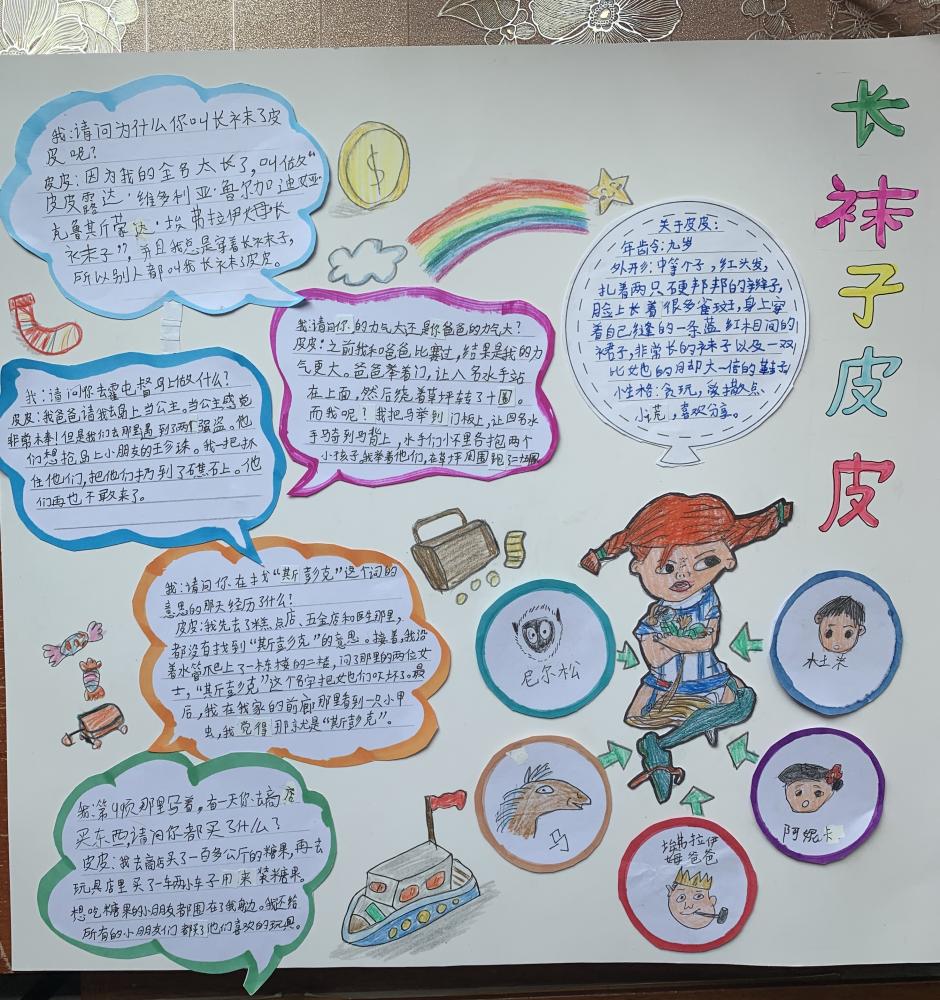 长袜子皮皮
我:请问为什么你叫长袜子皮
皮呢?
皮皮:因为我的全名太长了,叫做“
皮皮露达·维多利亚·鲁尔加迪娅·
克鲁斯蒙达·埃弗拉伊姆·长
袜子”,并且我总是穿着长袜子,
所以别人都叫我长袜子皮皮。
关于皮皮:
年龄:九岁
外形:中等个子,红头发,
扎着两只硬邦邦的辫子,
脸上长着很多雀斑,身上穿
着自己缝的一条蓝红相间的
裙子,非常长的袜子以及一双
比她的脚大一倍的鞋子
性格:贪玩,爱撒点
小谎,喜欢分享。
我:请问你的力气大还是你爸爸的力气大?
皮皮:之前我和爸爸比赛过,结果是我的力
气更大。爸爸举着门,让八名水手站
在上面,然后绕着草坪转了十圈。
而我呢?我把马举到门板上,让四名水
手骑到马背上,水手们怀里各抱两个
小孩子,我举着他们,在草坪周围跑了二十五圈
我:请问你去霍屯督岛上做什么?
皮皮:我爸爸请我去岛上当公主。当公主感觉
非常棒!但是我们去那里遇到了两个强盗。他
们想抢岛上小朋友的珍珠。我一把抓
住他们,把他们扔到了礁石上。他
们再也不敢来了。
我:请问你在寻找“斯彭克”这个词的
意思的那天经历了什么?
皮皮:我先去了糕点店、五金店和医生那里,
都没有找到“斯彭克”的意思。接着,我沿
着水管爬上了一栋楼的二楼,问了那里的两位女
士,“斯彭克”这个名字把她们吓坏了。最
后,我在我家的前廊那里看到一只小甲
虫,我觉得那就是“斯彭克”。
我:第9页那里写着,有一天你去商店
买东西,请问你都买了什么?
皮皮:我去商店买了一百多公斤的糖果,再去
玩具店里买了一车两小车子用来装糖果。
想吃糖果的小朋友都围在了我身边。我还给
所有的小朋友们都买了他们喜欢的玩具。
尼尔松
马
埃弗拉伊
姆爸爸
阿妮卡